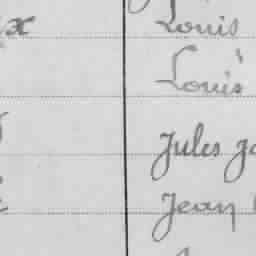 x Louis
Louis
Jules
Jean